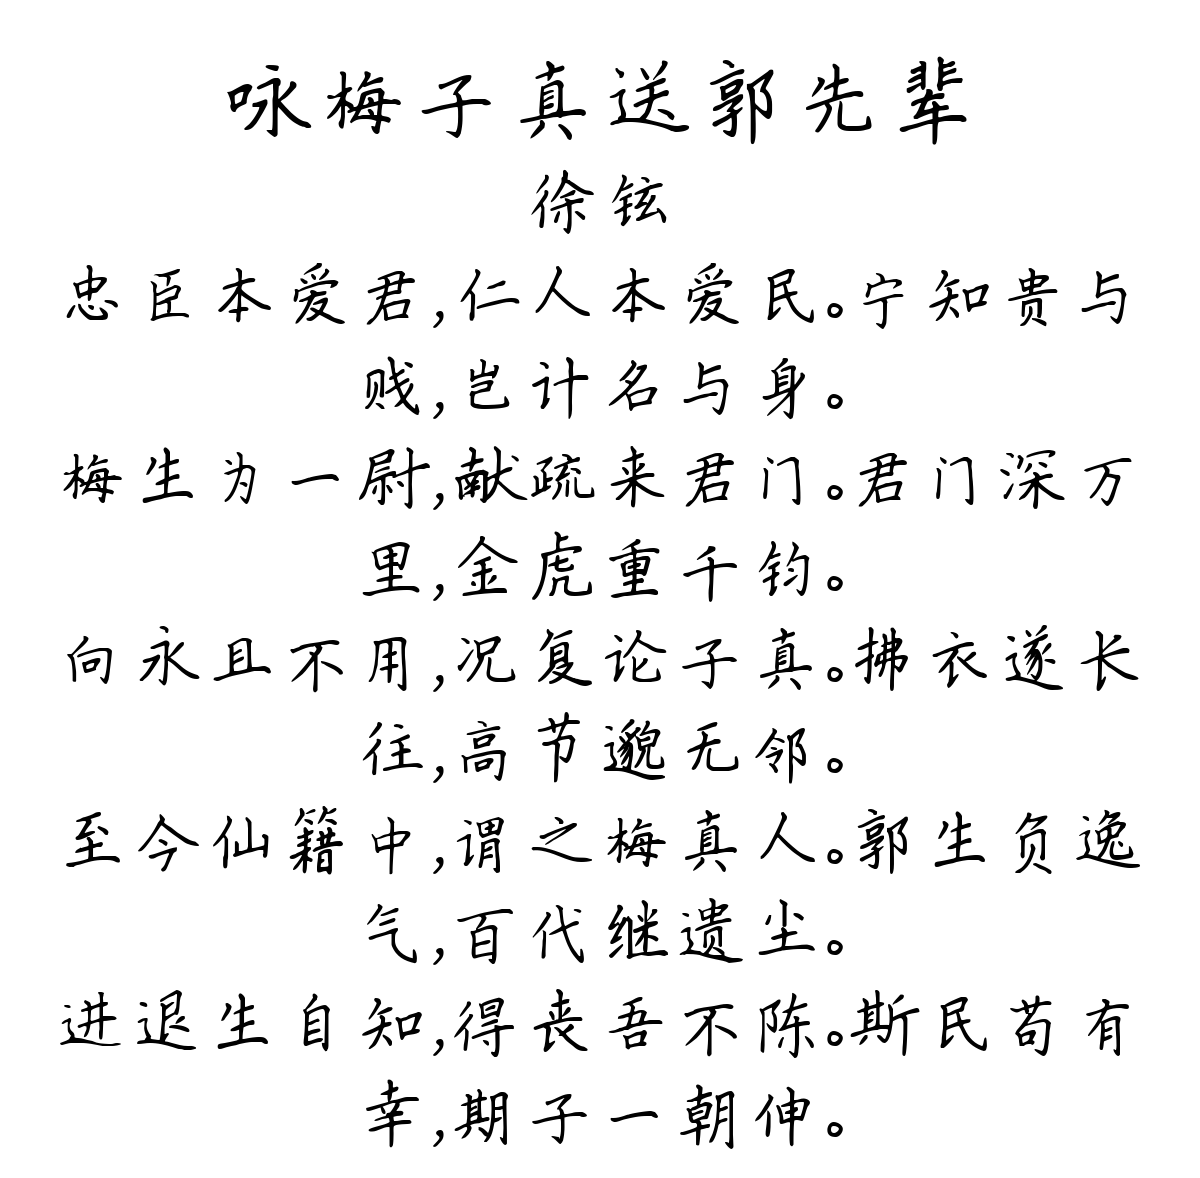 咏梅子真送郭先辈
徐铉
忠臣本爱君,仁人本爱民。宁知贵与
贱,岂计名与身。
梅生为一尉,献疏来君门。君门深万
里,金虎重千钧。
向永且不用,况复论子真。拂衣遂长
往,高节邈无邻。
至今仙籍中,谓之梅真人。郭生负逸
气,百代继遗尘。
进退生自知,得丧吾不陈。斯民苟有
幸,期子一朝伸。